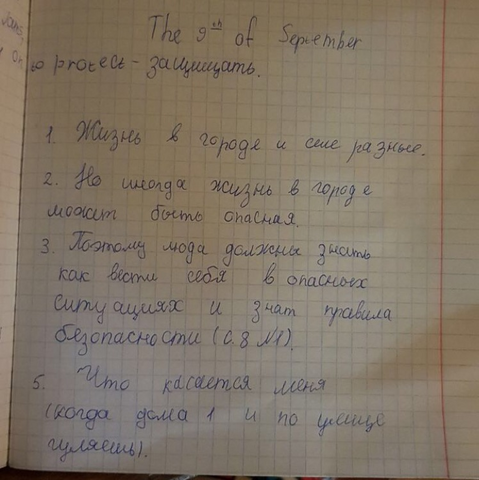 The 9th of September
to protect - защищать.
1. Жизнь в городе и селе разные.
2. Но иногда жизнь в городе
можит быть опасная.
3. Поэтому люда должны знать
как вести себя в опасных
ситуациях и знат правила
безопасности (с.8 №1).
5. Что касается меня
(когда дома 1 и по улице
гуляешь).